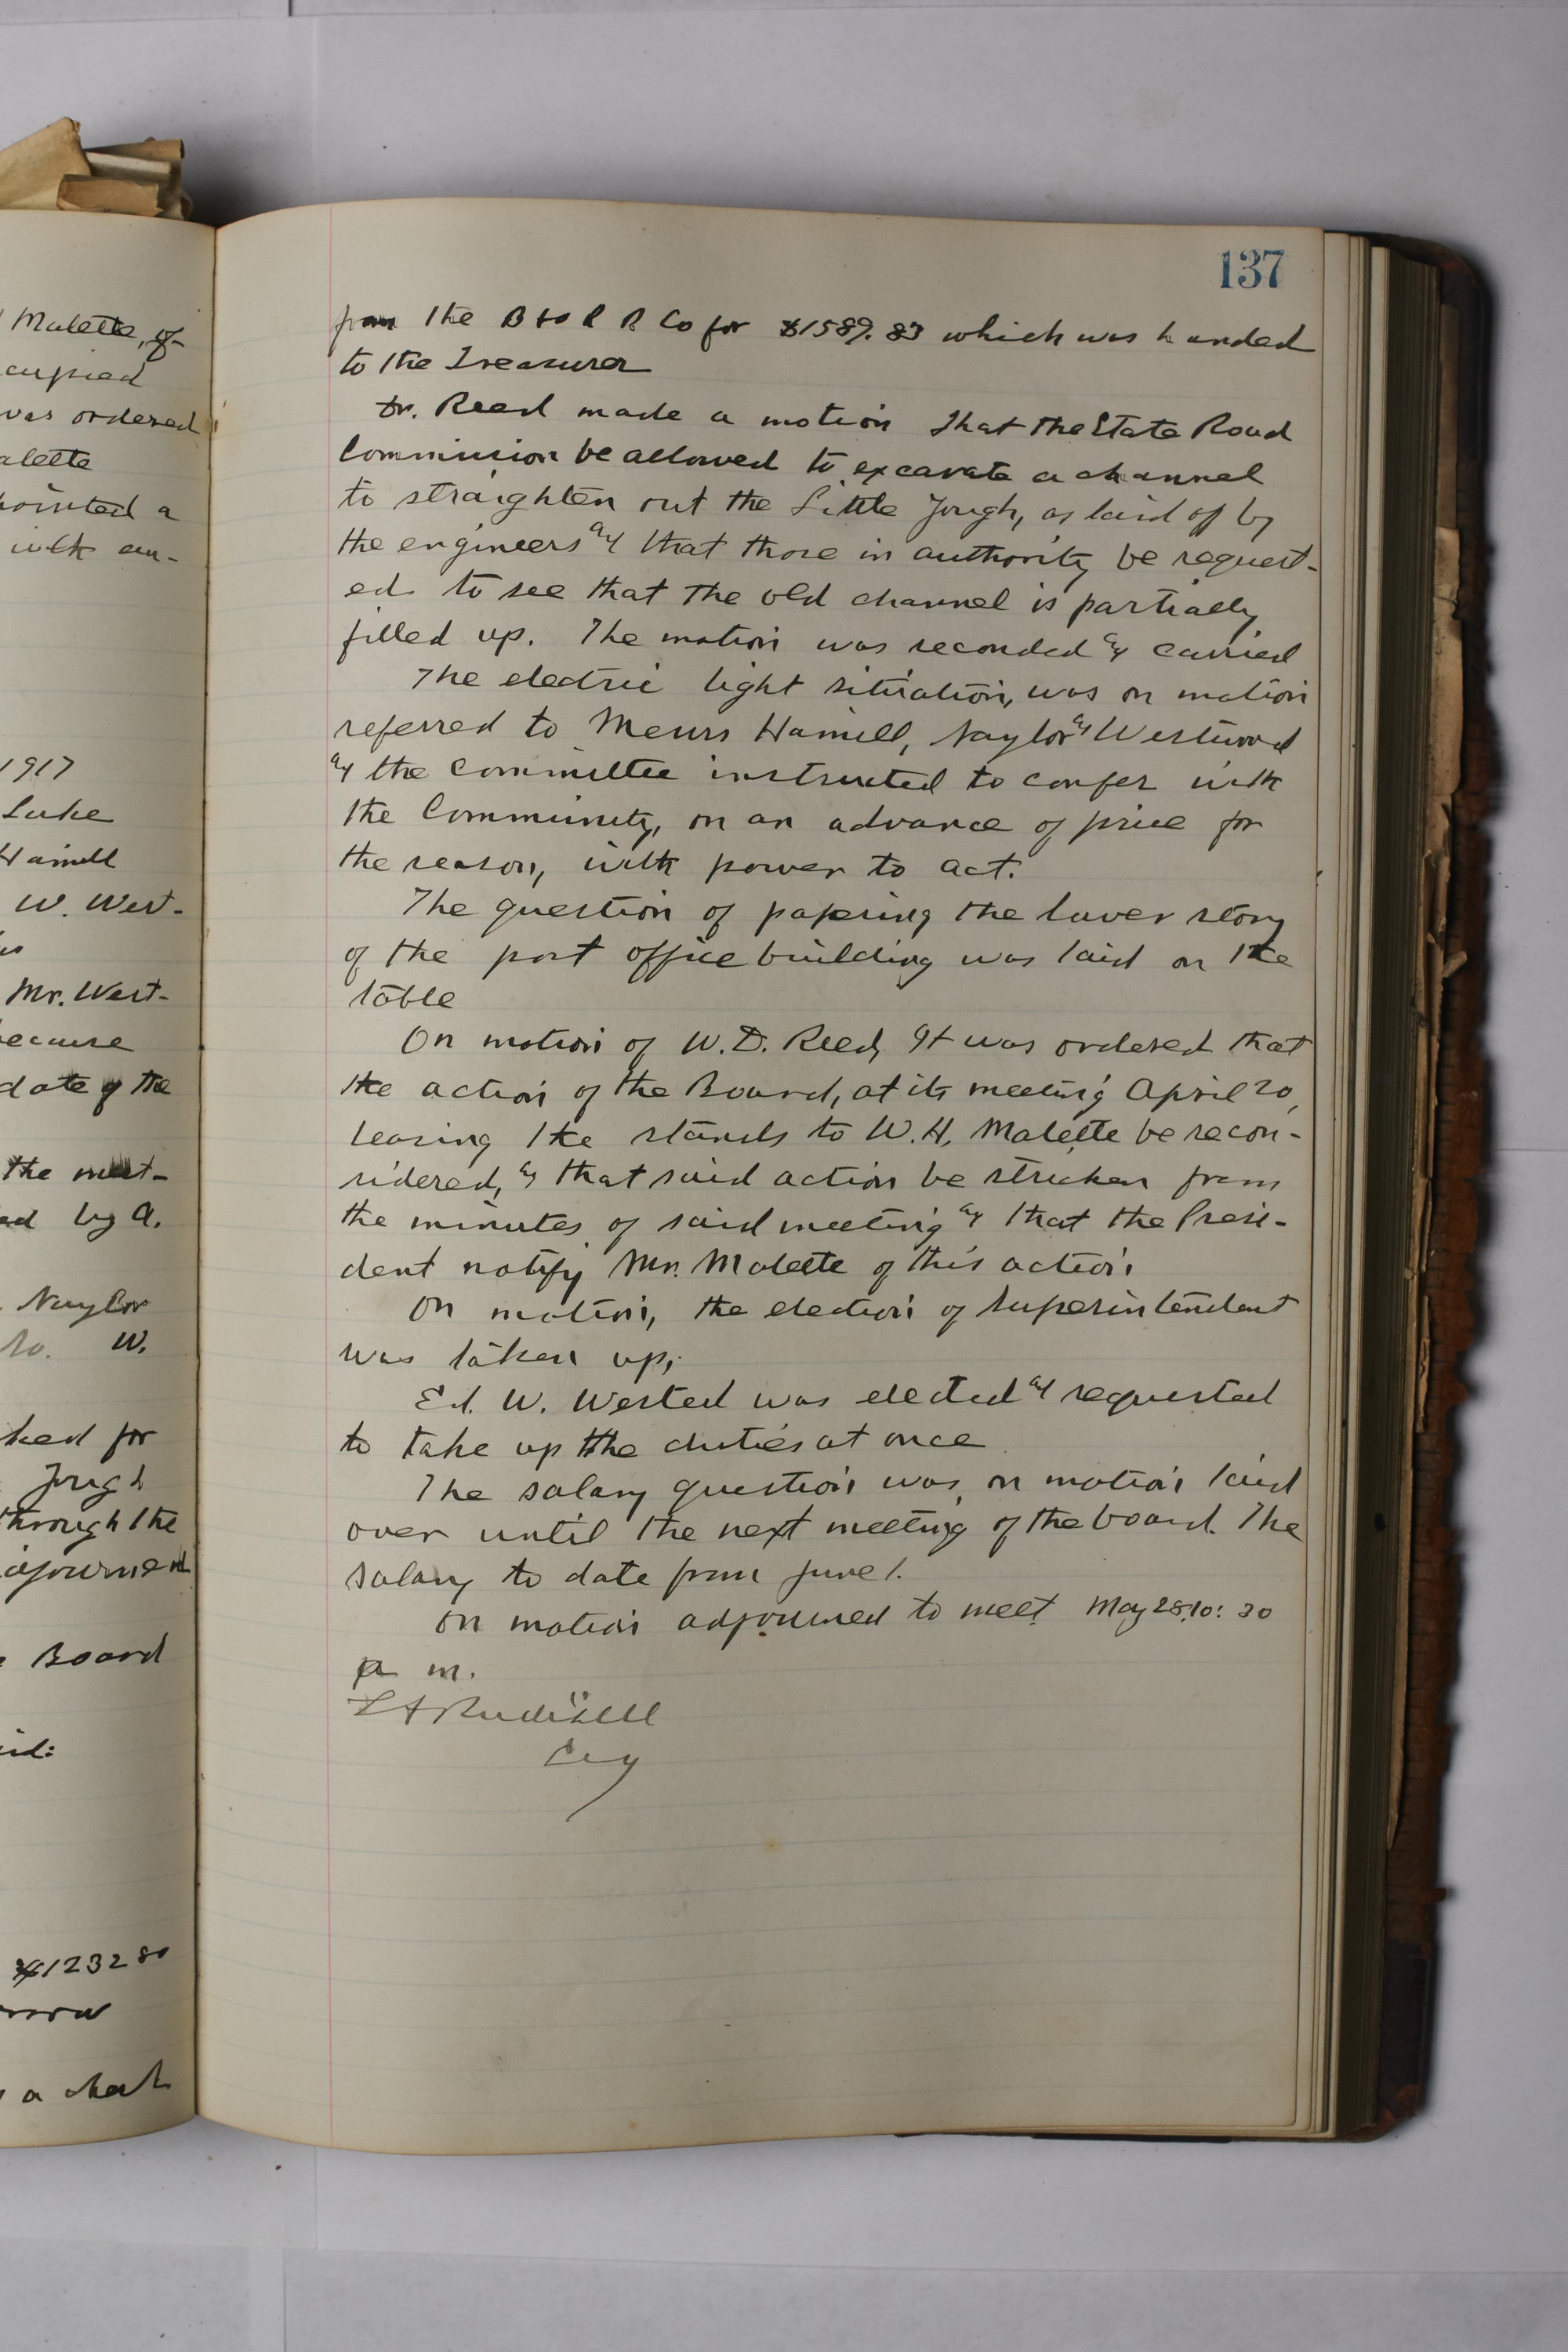 Malette, of-
cupied
was ordered
alette
pointed a
with au-
1917
Luke
Hamill
W. West-
Mr. West-
because
date of the
the meet-
ed by A.
Naylor
W.
ked for
Yough
through the
Board
$1232 80
137
from the B & O R R Co for $1589.83 which was handed
to the Treasurer
Dr. Reed made a motion that the State Road
Commission be allowed to excavate a channel
to straighten out the Little Yough, as laid of by
the engineers & that those in authority be request-
ed to see that the old channel is partially
filled up. The motion was seconded & carried
The electric light situation, was on motion
referred to Messrs Hamill, Naylor & Westwood
& the committee instructed to confer with
the Community, on an advance of price for
the season, with power to act.
The question of papering the lower story
of the post office building was laid on the
table
On motion of W. D. Reed, It was ordered that
the action of the Board, at its meeting April 20,
leasing the stands to W. H. Malette be recon-
sidered, & that said action be stricken from
the minutes of said meeting & that the Presi-
dent notify Mr. Malette of this action
On motion, the election of Superintendent
was taken up,
Ed. W. Wested was elected & requested
to take up the duties at once
The salary question was, on motion laid
over until the next meeting of the board. The
salary to date from June 1.
On motion adjourned to meet May 28, 10:30
a m.
L A Rudisill
Secy